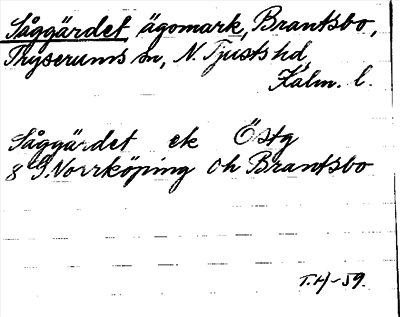 Såggärdet, ägomark, Brantsbo,
Tryserums sn, N. Tjusts hd,
Kalm. l.
Såggärdet ek Östg
8 G Norrköping oh Brantsbo
T.H-59.